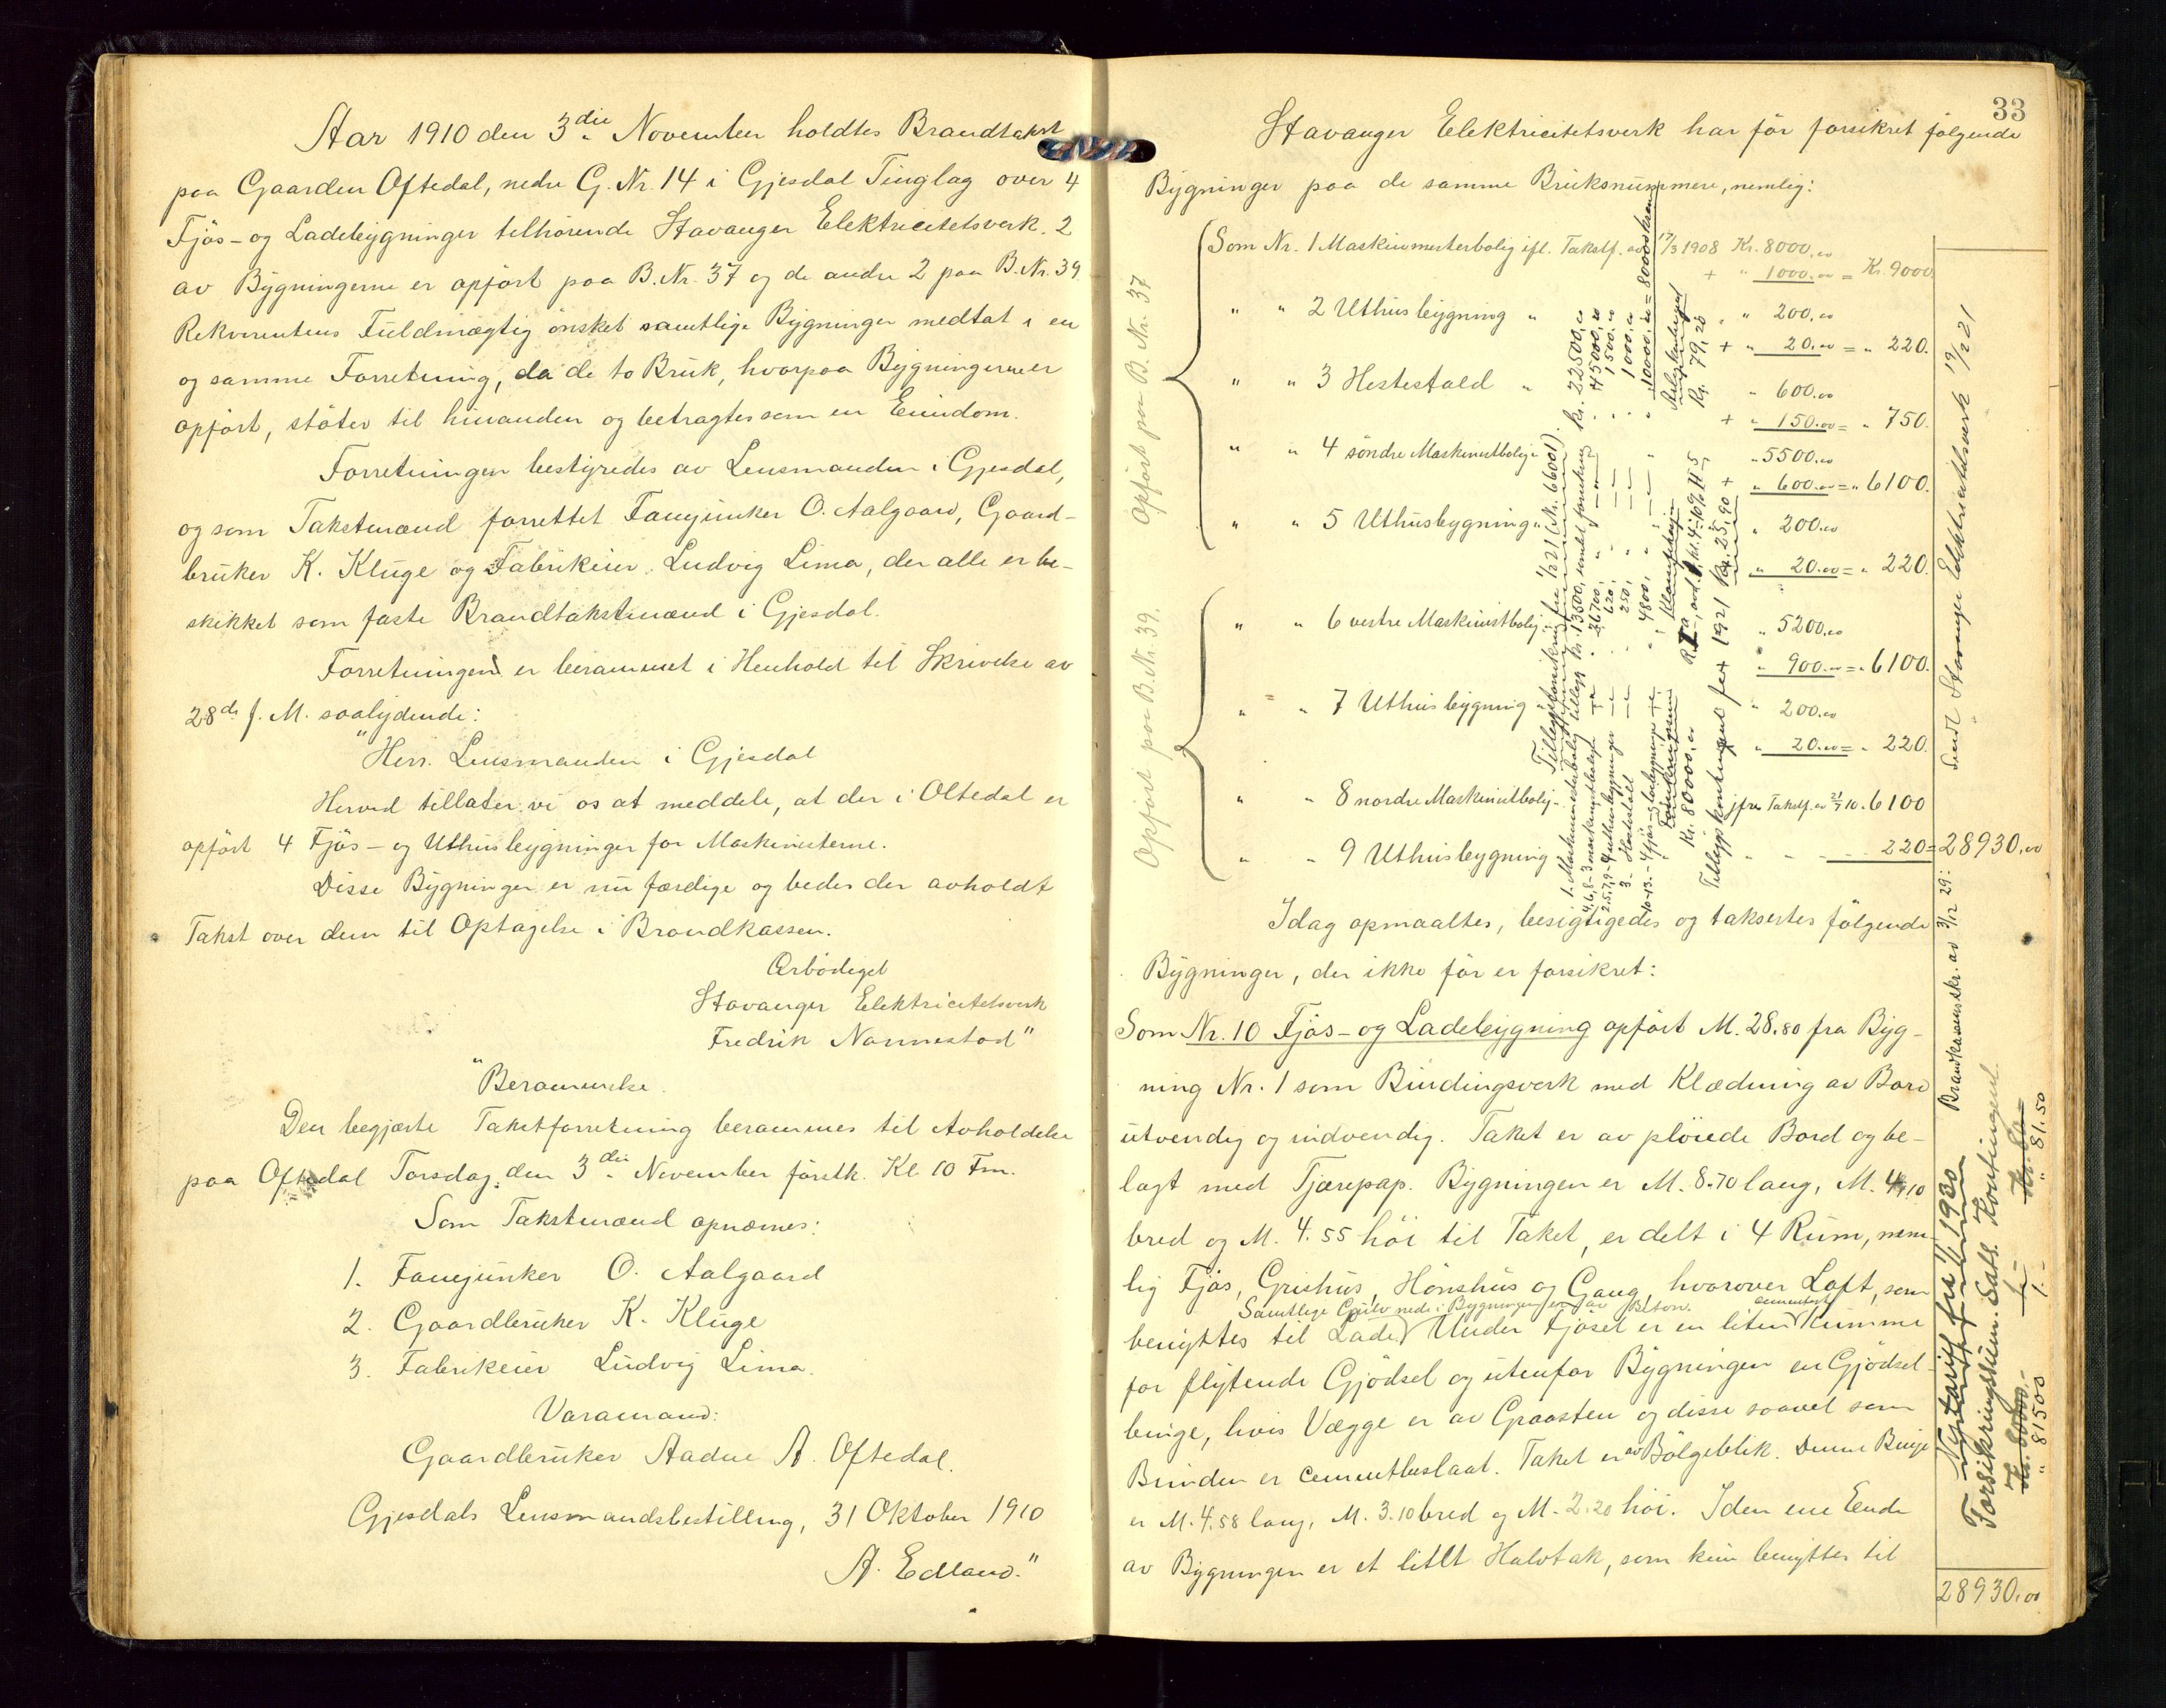 Aar 1910 den 3die November holdtes Brandtakst
paa Gaarden Oftedal, nedre G. Nr. 14 i Gjesdal Tinglag over 4
Fjøs- og Ladebygninger tilhørende Stavanger Elektricitetsverk. 2
av Bygningerne er opført paa B. Nr. 37 og de andre 2 paa B. Nr. 39
Rekvirentens Fuldmægtig ønsket samtlige Bygninger medtat i en
og samme Forretning, da de to Bruk, hvorpaa Bygningerne er
opført, støter til hinanden og betragtes som en Eiendom.
Forretningen bestyredes av Lensmanden i Gjesdal,
og som Takstmænd forrettet Fanejunker O. Aalgaard, Gaard-
bruker K. Kluge og Fabrikeier Ludvig Lima, der alle er be-
skikket som faste Brandtakstmænd i Gjesdal.
Forretningen er berammet i Henhold til Skrivelse av
28de f. M. saalydende:
"Herr. Lensmanden i Gjesdal
Herved tillater vi os at meddele, at der i Oltedal er
opført 4 Fjøs- og Uthusbygninger for Maskinisterne.
Disse Bygninger er nu færdige og bedes der avholdt
Takst over dem til Optagelse i Brandkassen.
Ærbødigst
Stavanger Elektricitetsverk
Fredrik Nannestad"
"Berammelse.
Den begjærte Takstforretning berammes til Avholdelse
paa Oftedal Torsdag den 3die November førstk. Kl 10 Fm.
Som Takstmænd opnævnes:
1. Fanejunker O. Aalgaard
2. Gaardbruker K. Kluge
3. Fabrikeier Ludvig Lima.
Varamand:
Gaardbruker Aadne A. Oftedal.
Gjesdals Lensmandsbestilling, 31 Oktober 1910
A. Edland."
33
Stavanger Elektricitetsverk har før forsikret følgende
Bygninger paa de samme Bruksnummere, nemlig:
Opført paa B. Nr. 37
Som Nr. 1 Maskinmesterbolig ifl. Takstf. av 17/3 1908 Kr. 8000,00
+ " 1000,00 = Kr. 9000
" " 2 Uthusbygning " " " 200,00
+ " 20,00 = " 220.
" " 3 Hestestald " " 600,00
+ " 150,00 = " 750.
" " 4 søndre Maskinistbolig " " 5500,00
+ " 600,00 = " 6100.
" " 5 Uthusbygning " " 200,00
" 20,00 = " 220.
Opført paa B. Nr. 39.
" " 6 vestre Maskinistbolig " 5200,00
" 900,00 = " 6100.
" " 7 Uthusbygning " " 200,00
" 20,00 = " 220.
" " 8 nordre Maskinistbolig jfr Takstf. av 21/7 10 " 6100
" " 9 Uthusbygning " " " 220 = 28930,00
Tilleggsforsikring fra 1/1 21 (Nr. 6601).
1. Maskinmesterbolig tillegg Kr. 13500, samlet forsikring Kr. 22500,00
4, 6, 8 - 3 maskinistboliger " 26700, " 45000,00
2, 5, 7, 9 - 4 uthusbygninger " 620, " 1500,00
3 - Hestestall " 250, " 1000,00
10-13 - 4 fjøs- og ladebygninger " 4800, " 10000,00 = 80000 kroner
Kr. 80000,00
Kr. 79,20
Tilleggskontingent for 1921 Kr. 25,90
Sendt Stavanger Elektricitetsverk 19/2 21
Idag opmaaltes, besigtigedes og taksertes følgende
Bygninger, der ikke før er forsikret:
Som Nr. 10 Fjøs- og Ladebygning opført M. 28.80 fra Byg-
ning Nr. 1 som Bindingsverk med Klædning av Bord
utvendig og indvendig. Taket er av pløiede Bord og be-
lagt med Tjærepap. Bygningen er M. 8.70 lang, M. 4.10
bred og M. 4.55 høi til Taket, er delt i 4 Rum, nem-
lig Fjøs, Grishus, Hønshus og Gang, hvorover Loft, som
Samtlige Gulv nede i Bygningen er av Beton. cementert
benyttes til Lade. Under Fjøset er en liten Kumme
for flytende Gjødsel og utenfor Bygningen en Gjødsel-
binge, hvis Vægge er av Graasten og disse saavel som
Bunden er cementbeslaat. Taket er av Bølgeblik. Denne Binge
er M. 4.58 lang, M. 3.10 bred og M. 2.20 høi. I den ene Ende
av Bygningen er et litet Halvtak, som kun benyttes til
28930,00
Brandkassens skr. av 3/12 29:
Ny tariff fra 1/1 1930
Forsikringssum. Sats. Kontingent.
Kr. 80000,- 1.- Kr. 80.-
" 81500 1.- " 81.50